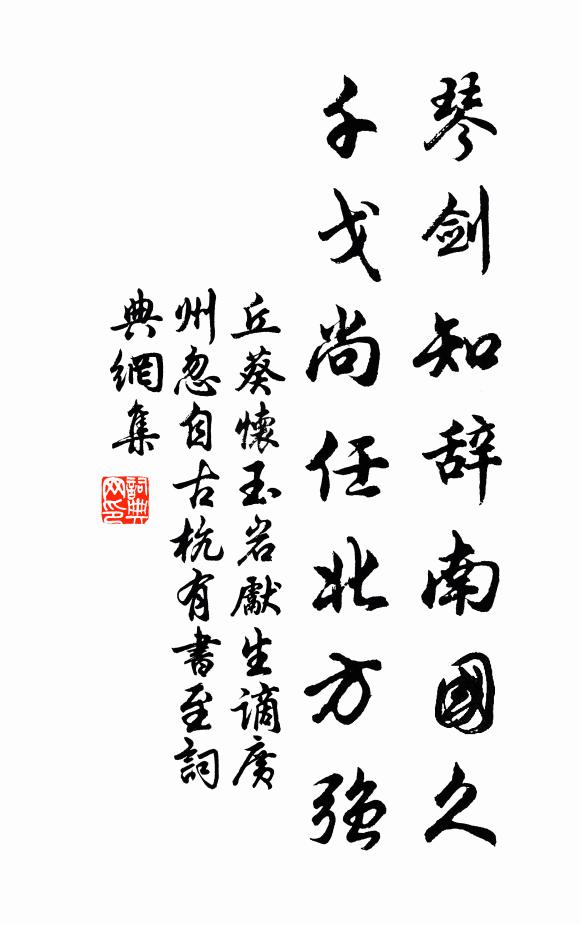 琴剑知辞南國久
千戈尚任北方强
丘葵懷玉岩獻生謫廣
州忽自古杭有書至詞
典網集
詞典
网印